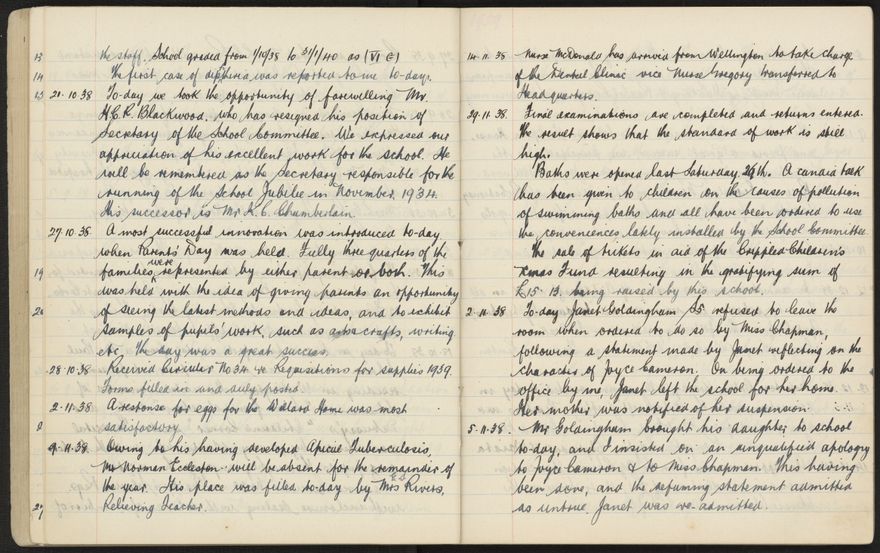 the staff. School graded from 1/10/38 to 31/1/40 as (VI C)
The first case of diptheria, was reported to me to-day.
21.10.38 To-day we took the opportunity of farewelling Mr.
H.C.R. Blackwood, who has resigned his position of
Secretary of the School Committee. We expressed our
appreciation of his excellent work for the school. He
will be remembered as the Secretary responsible for the
running of the School Jubilee in November, 1934.
His successor is Mr. A. C. Chamberlain.
27.10.38 A most successful innovation was introduced to-day
when Parents' Day was held. Fully three quarters of the
families were represented by either parent or both. This
was held with the idea of giving parents an opportunity
of seeing the latest methods and ideas, and to exhibit
samples of pupils' work, such as crafts, writing
etc. The day was a great success.
28.10.38 Received Circular No 34 re Requisitions for supplies 1939.
Forms filled in and duly posted
2-11-38 A response for eggs for the Willard Home was most
satisfactory
9.11.38 Owing to his having developed Apical Tuberculosis,
Mr Norman Eccleston will be absent for the remainder of
the year. His place was filled to-day by Mrs Rivers,
Relieving Teacher.
14.11.38 Nurse McDonald has arrived from Wellington to take charge
of the Dental Clinic vice Nurse Gregory transferred to
Headquarters.
29.11.38. Final examinations are completed and returns entered.
The result shows that the standard of work is still
high.
Baths were opened last Saturday, 26th. A candid talk
has been given to children on the causes of pollution
of swimming baths and all have been ordered to use
the conveniences lately installed by the School Committee
The sale of tickets in aid of the Crippled Children's
Xmas Fund resulting in the gratifying sum of
£15. 13. being raised by this school.
2.11.38 To-day Janet Goldingham S5 refused to leave the
room when ordered to do so by Miss Chapman,
following a statement made by Janet reflecting on the
character of Joyce Cameron. On being ordered to the
office by me, Janet left the school for her home.
Her mother was notified of her suspension.
5.11.38. Mr Goldingham brought his daughter to school
to-day, and I insisted on an unqualified apology
to Joyce Cameron & to Miss Chapman. This having
been done, and the defaming statement admitted
as untrue, Janet was re-admitted.